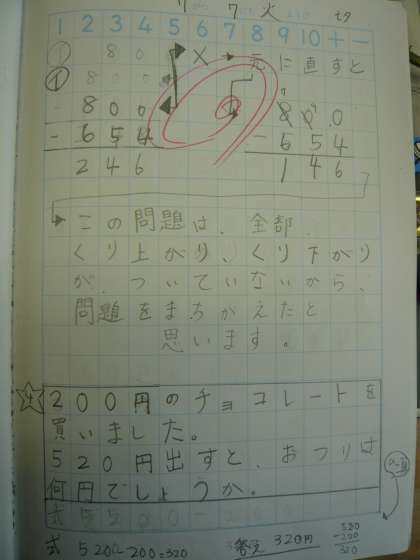 7 7 火
1 2 3 4 5 6 7 8 9 10 + -
① 80
① 800 × → 元に直すと
800 800
- 654 - 654
246 146
この問題は、全部、
くり上がり、くり下がり
が、ついていないから、
問題をまちがえたと
思います。
4 200円のチョコレートを
買いました。
520円出すと、おつりは
何円でしょうか。
式 520-200=320 答え 320円
520
-200
320